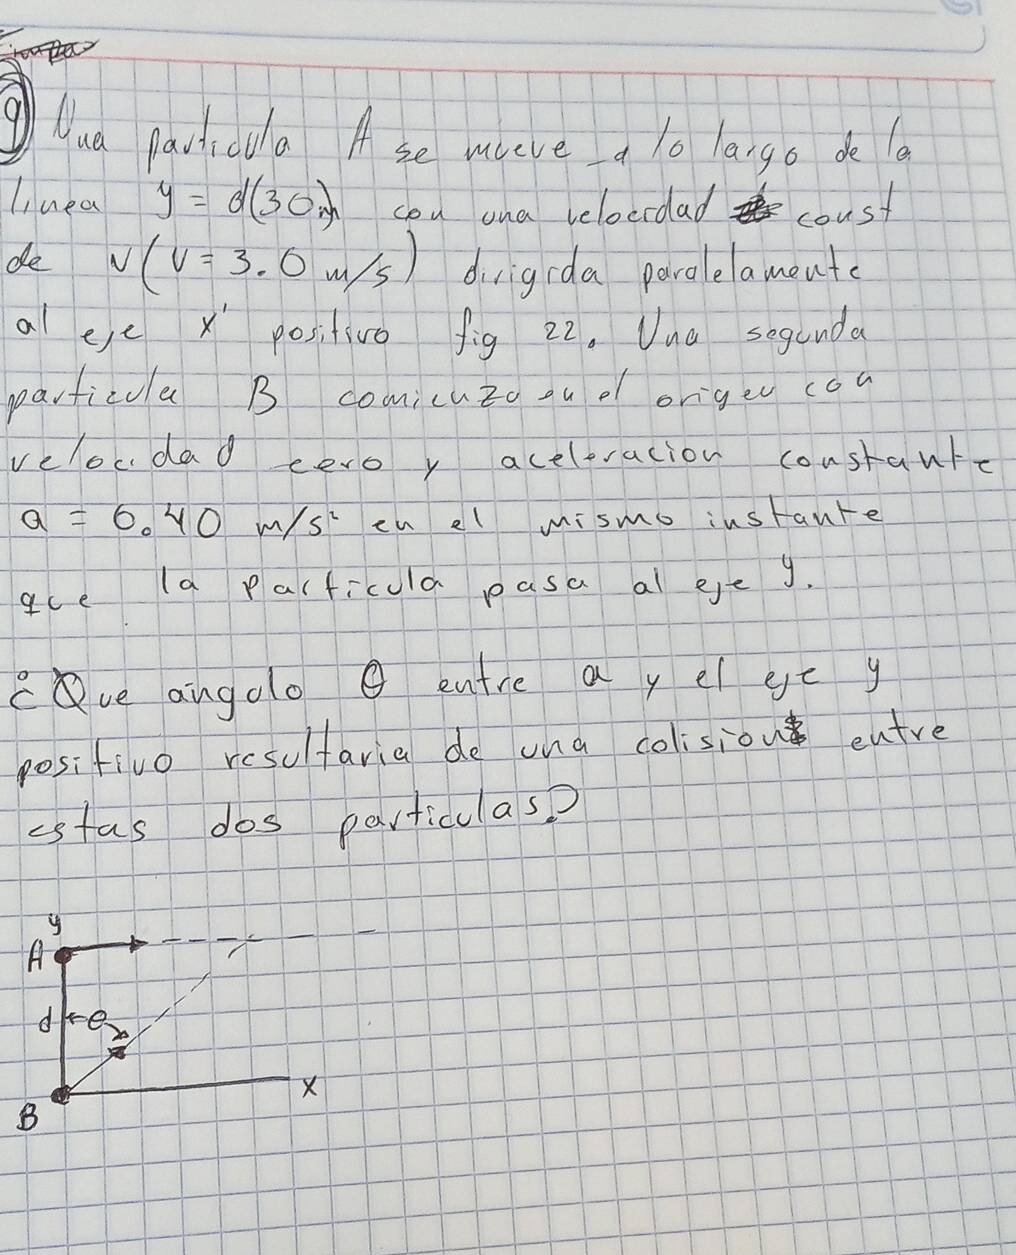 9) Una particula A se mueve a lo largo de la
linea y = d(30m) con una velocidad const
de v (v = 3.0 m/s) dirigida paralelamente
al eje x' positivo fig 22. Una segunda
particula B comienza en el origen con
velocidad cero y aceleracion constante
a = 0.40 m/s² en el mismo instante
que la particula pasa al eje y.
¿Que angulo θ entre a y el eje y
positivo resultaria de una colision entre
estas dos particulas?
y
A
d θ
x
B